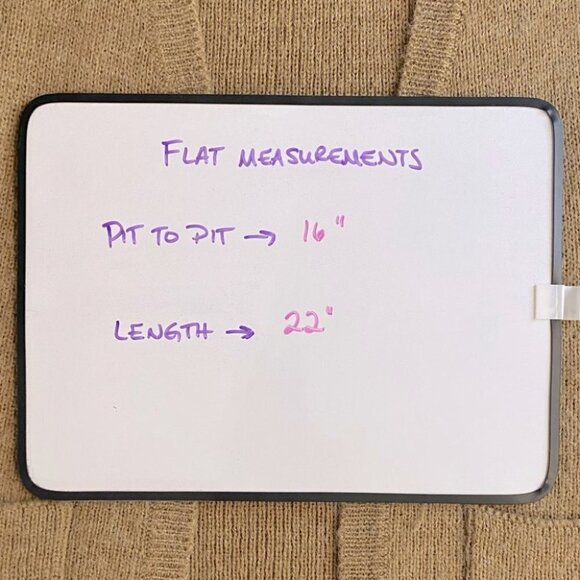 FLAT MEASUREMENTS
PIT TO PIT → 16"
LENGTH → 22"